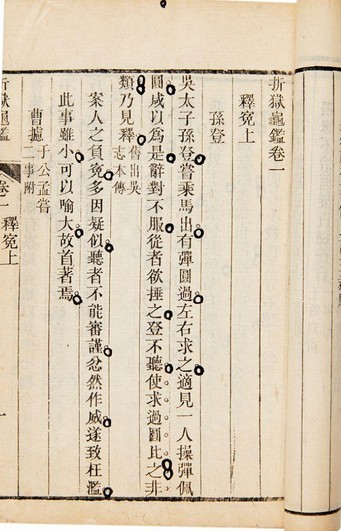 折獄龜鑑卷一
釋冤上
孫登
吳太子孫登嘗乘馬出有彈圓過左右求之適見一人操彈佩
圓咸以為是辭對不服從者欲捶之登不聽使求過圓比之非
類乃見釋舊出吳志本傳
案人之負冤多因疑似聽者不能審謹忿然作威遂致枉濫
此事雖小可以喻大故首著焉
曹攄于公孟嘗二事附
折獄龜鑑
卷一 釋冤上
一